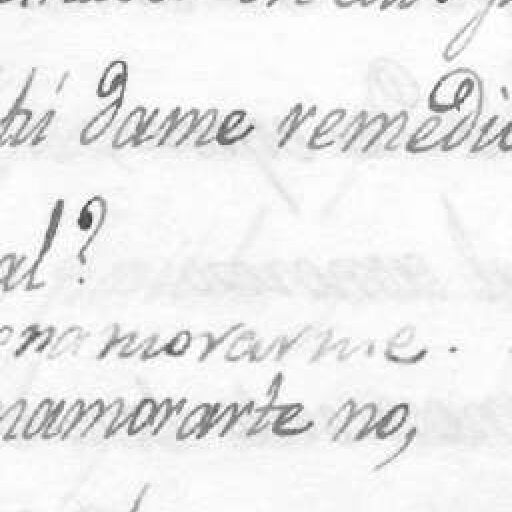 tú dame remedio
al?
enamorarme.
namorarte no,